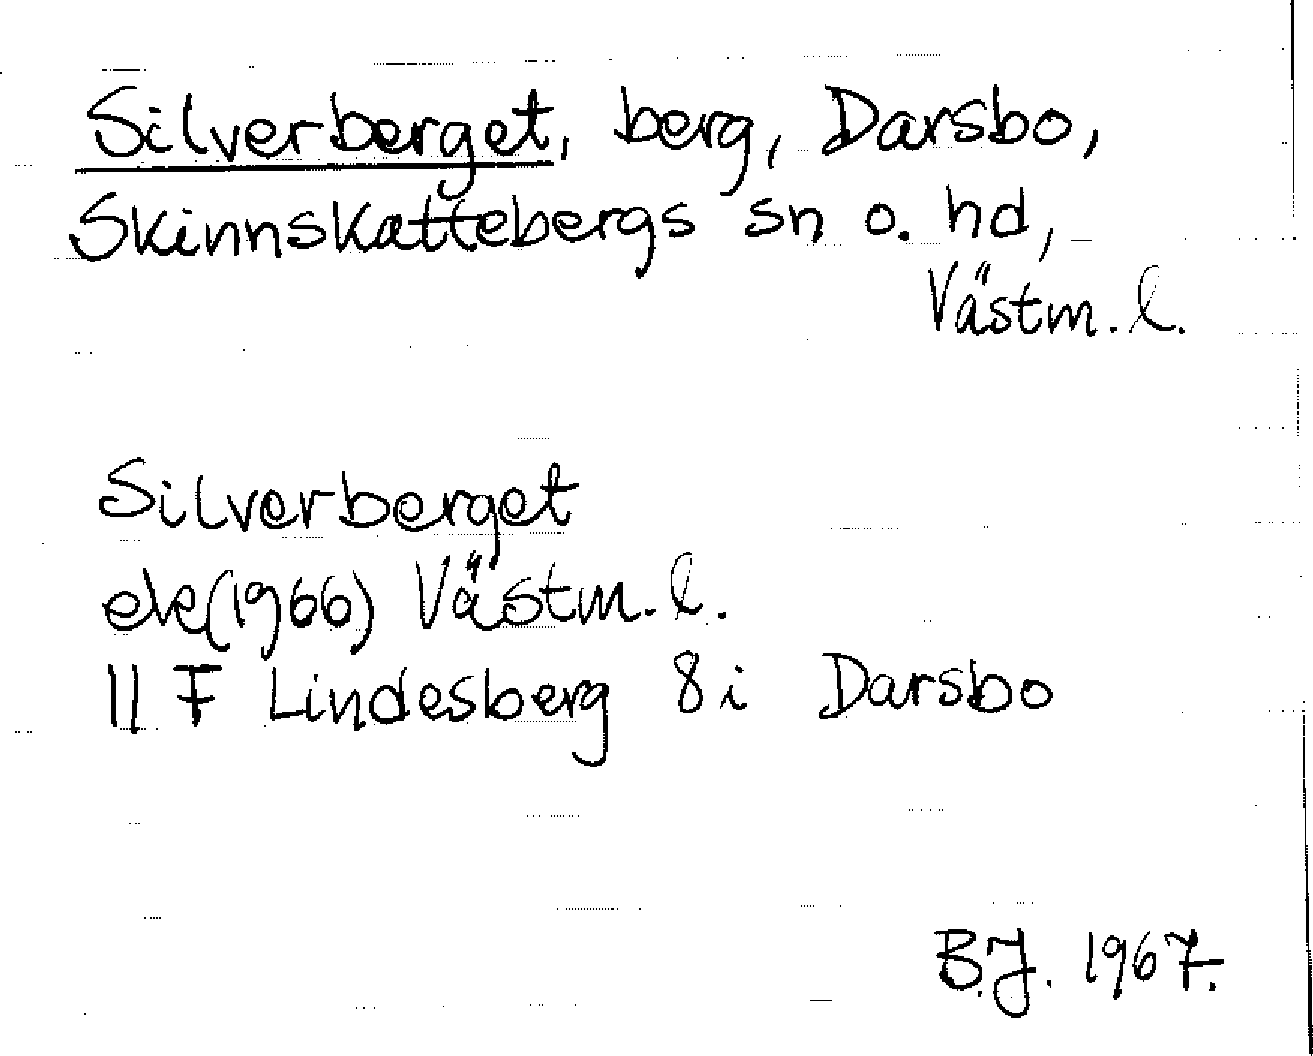 Silverberget, berg, Darsbo,
Skinnskattebergs sn o. hd,
Västm. l.
Silverberget
ek(1966) Västm. l.
11 F Lindesberg 8 i Darsbo
B.J. 1967.